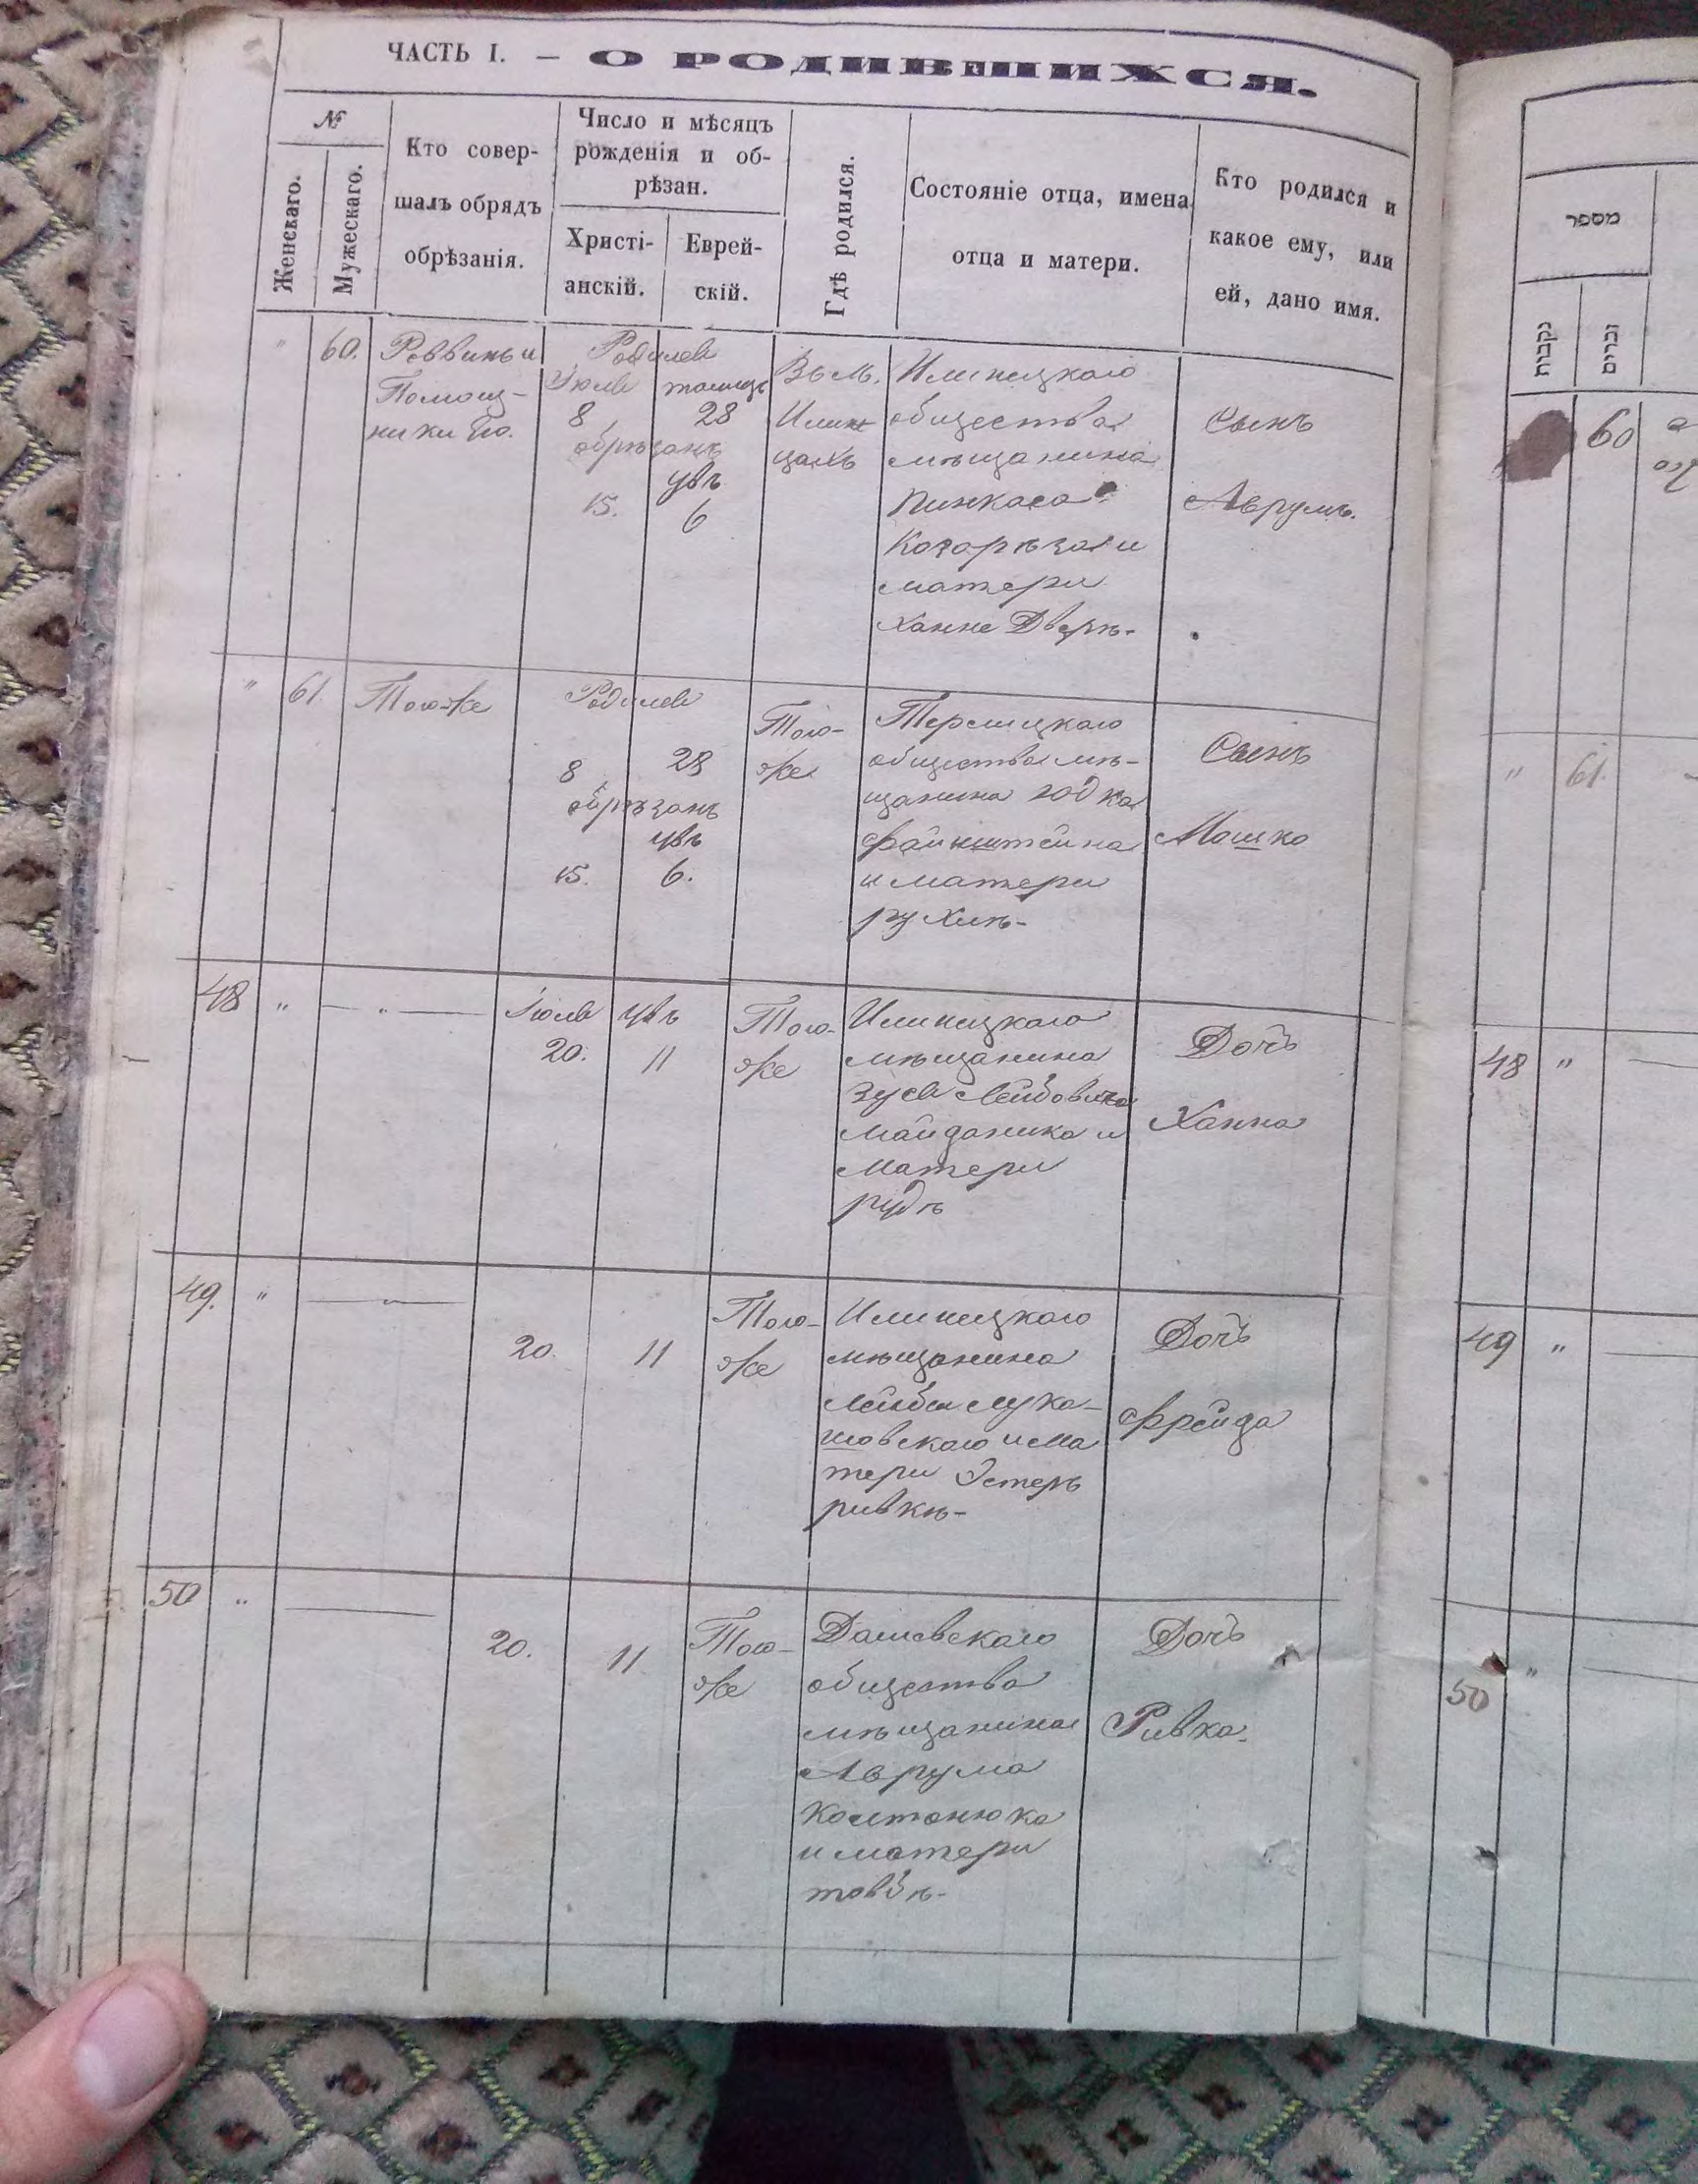 ЧАСТЬ I. — О РОДИВШИХСЯ.
№
Женскаго.
Мужескаго.
Кто совер-
шалъ обрядъ
обрѣзанія.
Число и мѣсяцъ
рожденія и об-
рѣзан.
Христі-
анскій.
Еврей-
скій.
Гдѣ родился.
Состояніе отца, имена
отца и матери.
Кто родился и
какое ему, или
ей, дано имя.
" 60.
Раввинъ и
Помощ-
ники Его.
Родился
Іюля
8 28
обрѣзанъ
15. 6
Въ м.
Илин
цахъ
Илинецкаго
общества
мѣщанина
Пинкаса
Козорѣза и
матери
Ханне Двере-
Сынъ
Аврумъ.
" 61.
Тоже
Родился
8 28
обрѣзанъ
15. 6.
Того-
же
общества мѣ-
щанина
Файнштейна
и матери
рухлѣ-
Сынъ
Мошко
48 "
— " —
Іюля
20. 11
Того-
же
Илинецкаго
мѣщанина
Зуся Лейбовича
Майданика и
матери
рудѣ
Дочь
Ханна
49. "
— " —
20. 11
Того-
же
Илинецкаго
мѣщанина
Лейбы Лука-
шовскаго и ма
тери Эстеръ
ривкѣ-
Дочь
Фрейда
50 "
20. 11
Того-
же
Дашевскаго
общества
мѣщанина
Аврума
Колтонюка
и матери
товбѣ-
Дочь
Ривка.
מספר
נקבות
זכרים
60
" 61.
48 "
49 "
50 "